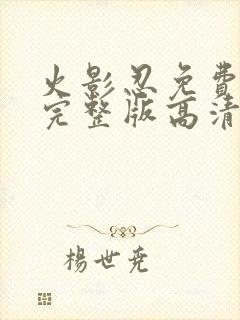 火影忍免費
完整版高清
楊世堯